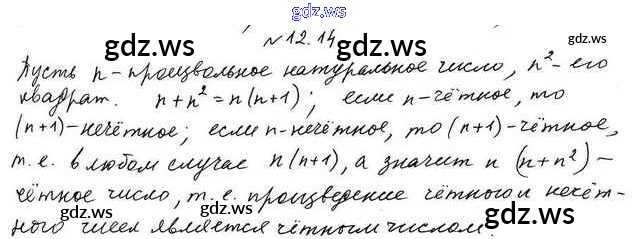 gdz.ws
№12.14
gdz.ws gdz.ws
Пусть n - произвольное натуральное число, n² - его
квадрат. n + n² = n(n+1); если n - чётное, то
(n+1) - нечётное; если n - нечётное, то (n+1) - чётное,
т.е. в любом случае n(n+1), а значит и (n+n²) -
gdz.ws gdz.ws
чётное число, т.е. произведение чётного и нечёт-
ного чисел является чётным числом.
gdz.ws gdz.ws